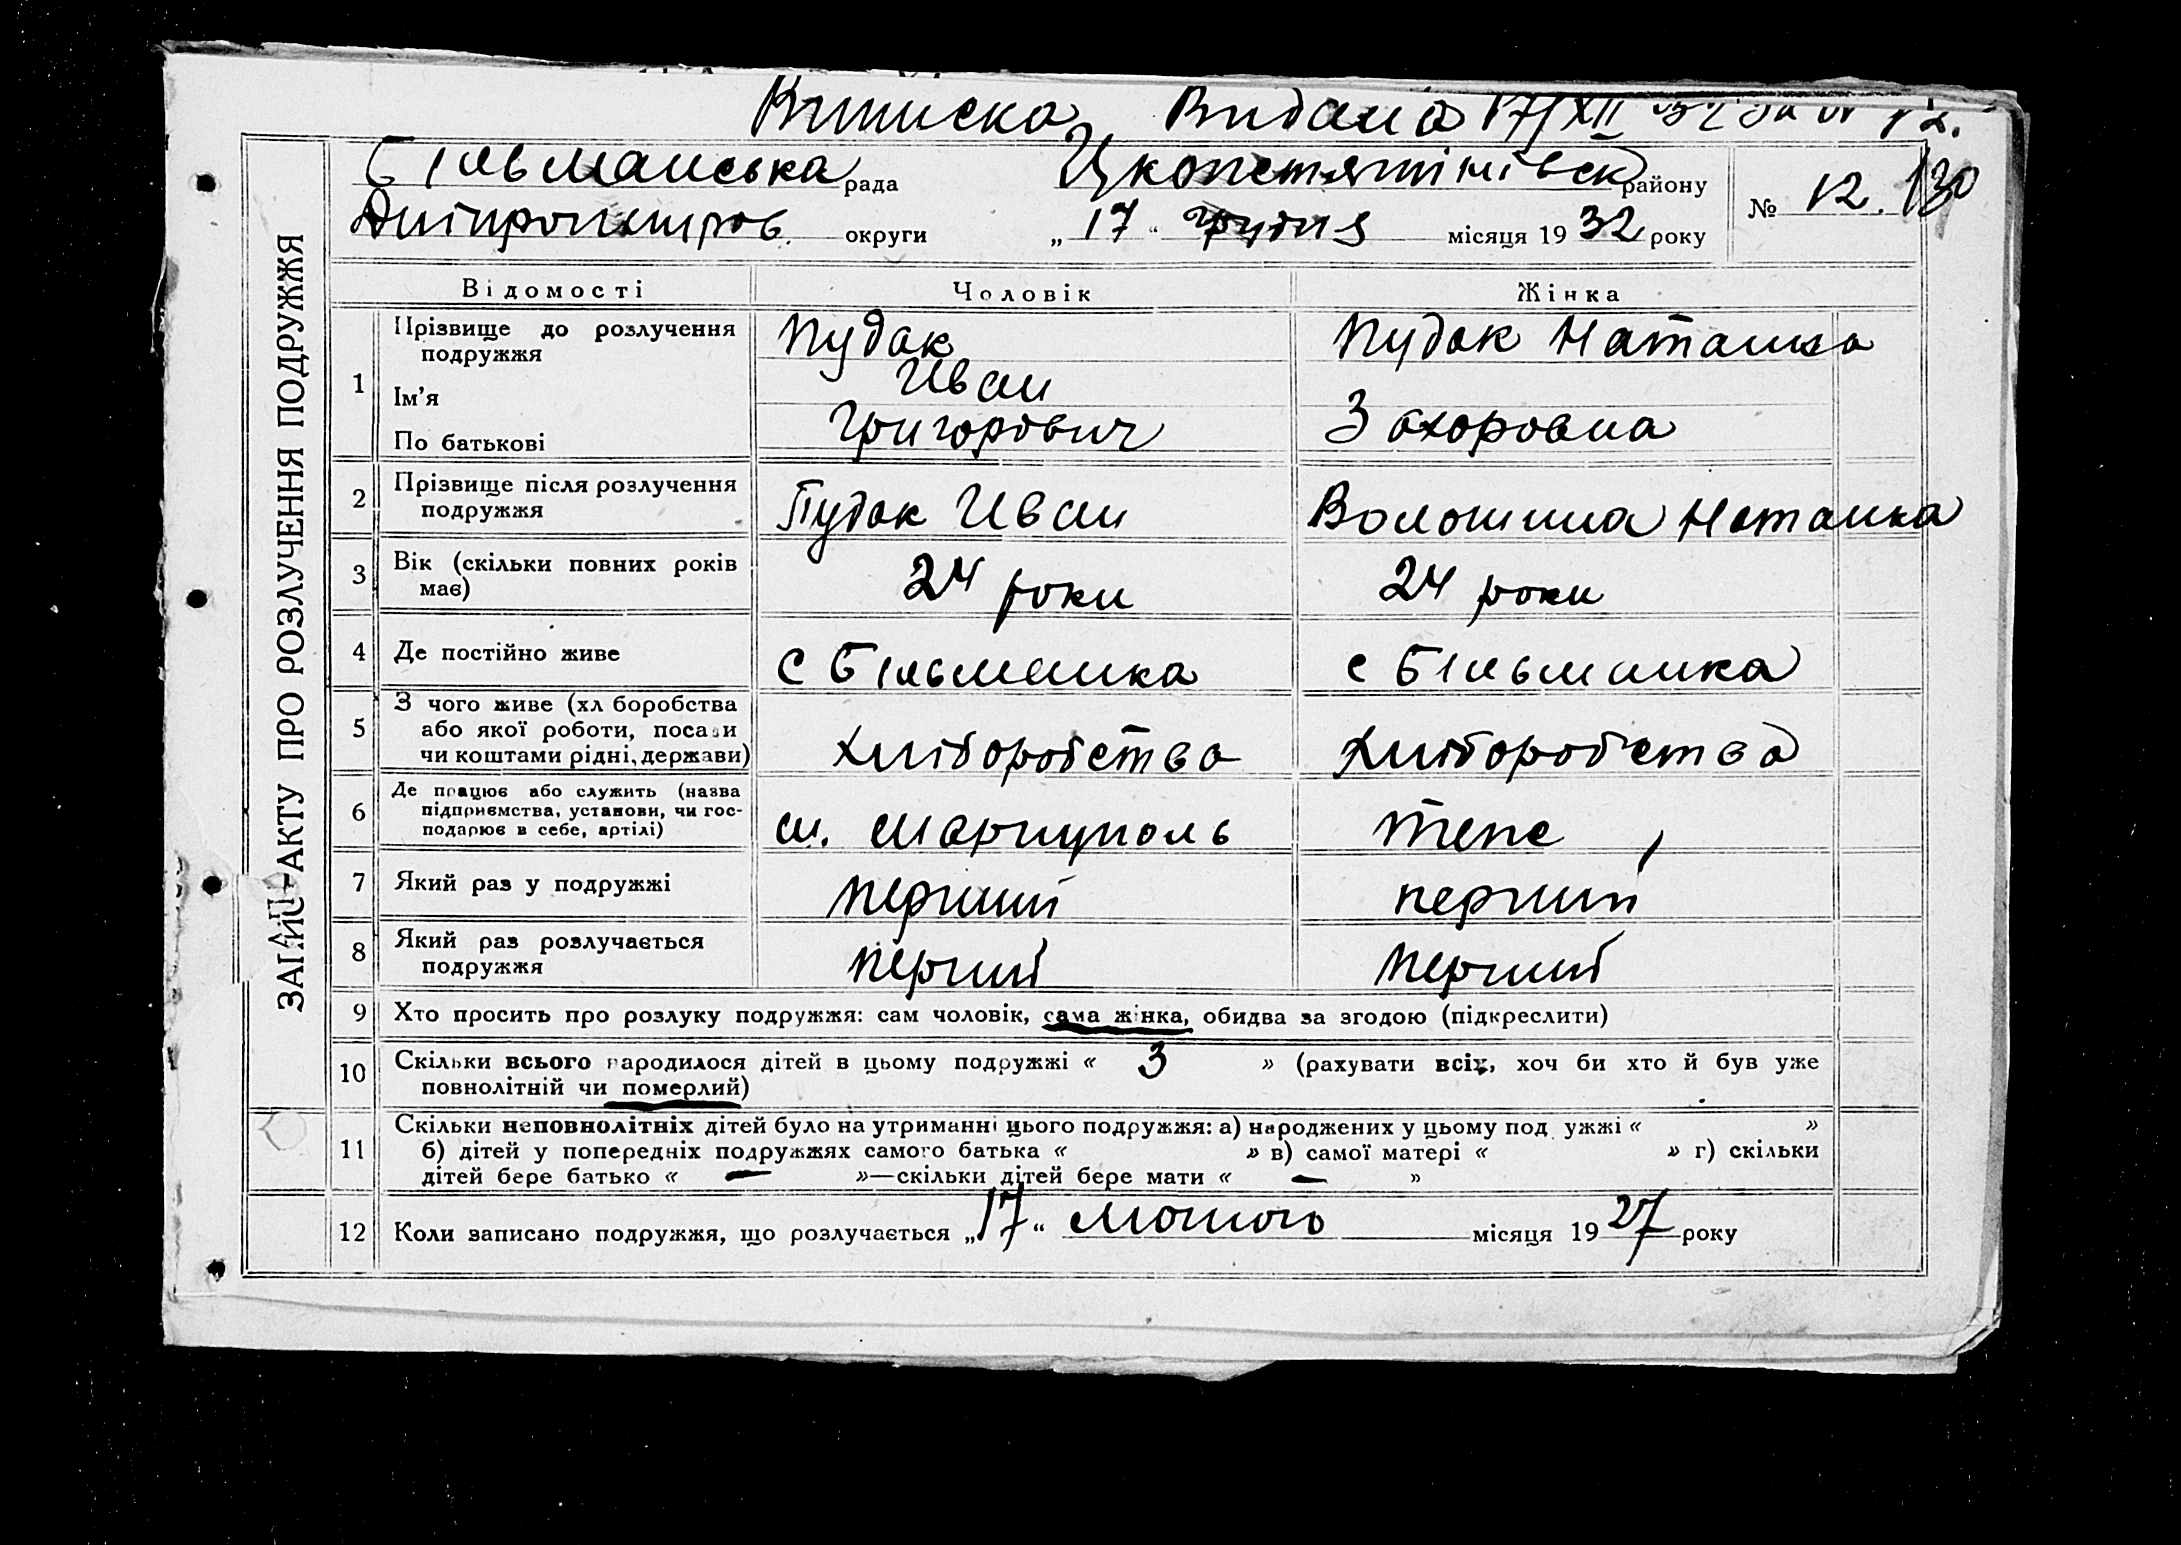 Виписка Видана 17/XII 32 за № 12.
Більманська рада Цкопстянтінівск району № 12. 130
Дніпропетров. округи „17“ грудня місяця 1932 року
ЗАПИС АКТУ ПРО РОЗЛУЧЕННЯ ПОДРУЖЖЯ
Відомості Чоловік Жінка
1 Прізвище до розлучення подружжя Пудак Пудак Наталка
Ім'я Иван
По батькові Григорович Захоровна
2 Прізвище після розлучення подружжя Пудак Иван Волошина Наталка
3 Вік (скільки повних років має) 24 роки 24 роки
4 Де постійно живе с Більманка с Більманка
5 З чого живе (хліборобства або якої роботи, посади чи коштами рідні, держави) хліборобства хліборобства
6 Де працює або служить (назва підприємства, установи, чи господарює в себе, артілі) м. Маріуполь
7 Який раз у подружжі перший перший
8 Який раз розлучається подружжя перший перший
9 Хто просить про розлуку подружжя: сам чоловік, сама жінка, обидва за згодою (підкреслити)
10 Скільки всього народилося дітей в цьому подружжі « 3 » (рахувати всіх, хоч би хто й був уже
повнолітній чи померлий)
11 Скільки неповнолітніх дітей було на утриманні цього подружжя: а) народжених у цьому подружжі « »
б) дітей у попередніх подружжях самого батька « » в) самої матері « » г) скільки
дітей бере батько « — »—скільки дітей бере мати « — »
12 Коли записано подружжя, що розлучається „17“ лютого місяця 1927 року